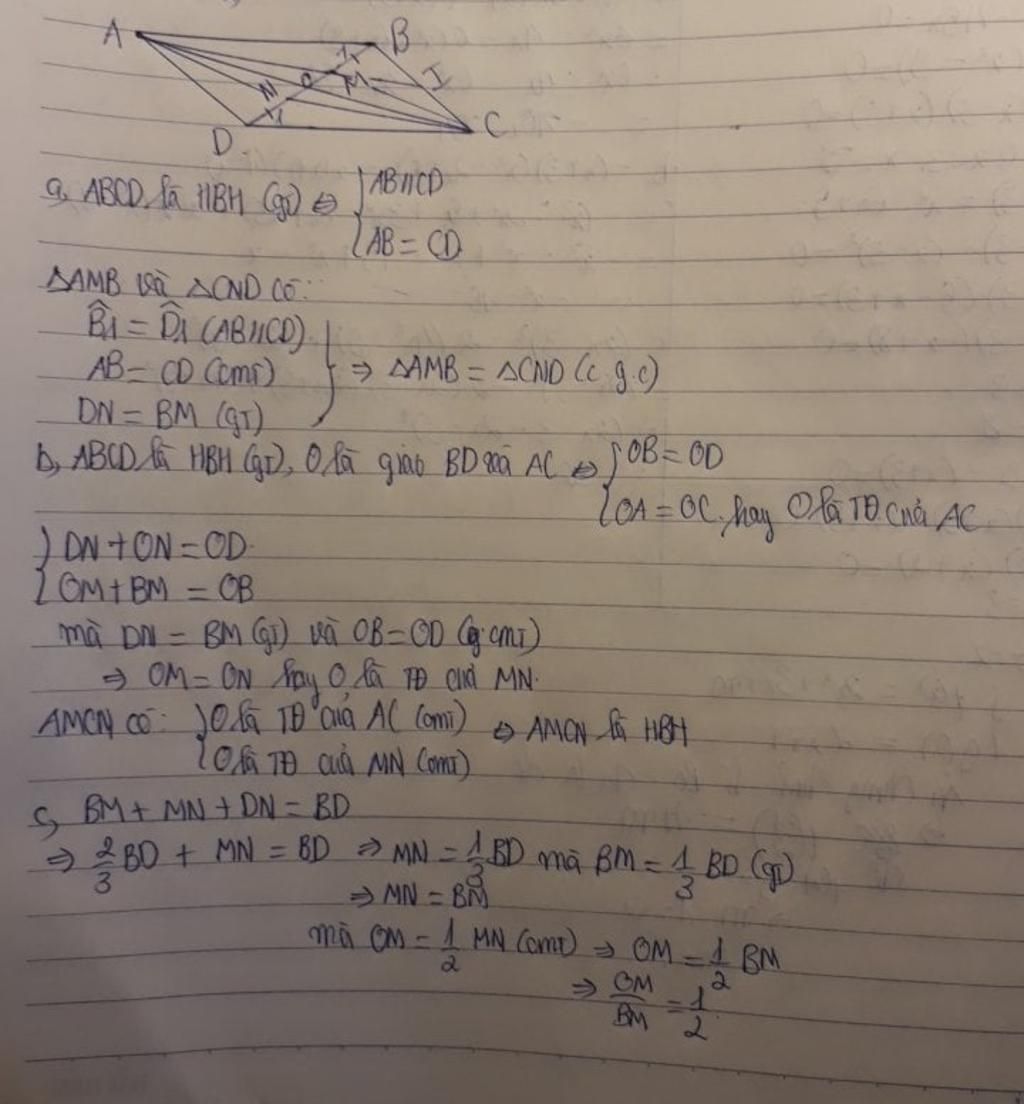 A B
N O M I
1
1
D C
a, ABCD là HBH (gt) ⇔ { AB//CD
AB = CD
ΔAMB và ΔCND có:
B̂1 = D̂1 (AB//CD)
AB = CD (cmt) } ⇒ ΔAMB = ΔCND (c.g.c)
DN = BM (gt)
b, ABCD là HBH (gt), O là giao BD và AC ⇔ { OB = OD
OA = OC hay O là TĐ của AC
{ DN + ON = OD
OM + BM = OB
mà DN = BM (gt) và OB = OD (cmt)
⇒ OM = ON hay O là TĐ của MN.
AMCN có: { O là TĐ của AC (cmt) ⇔ AMCN là HBH
O là TĐ của MN (cmt)
c, BM + MN + DN = BD
⇒ 2/3 BD + MN = BD ⇒ MN = 1/3 BD mà BM = 1/3 BD (gt)
⇒ MN = BM
mà OM = 1/2 MN (cmt) ⇒ OM = 1/2 BM
⇒ OM/BM = 1/2.